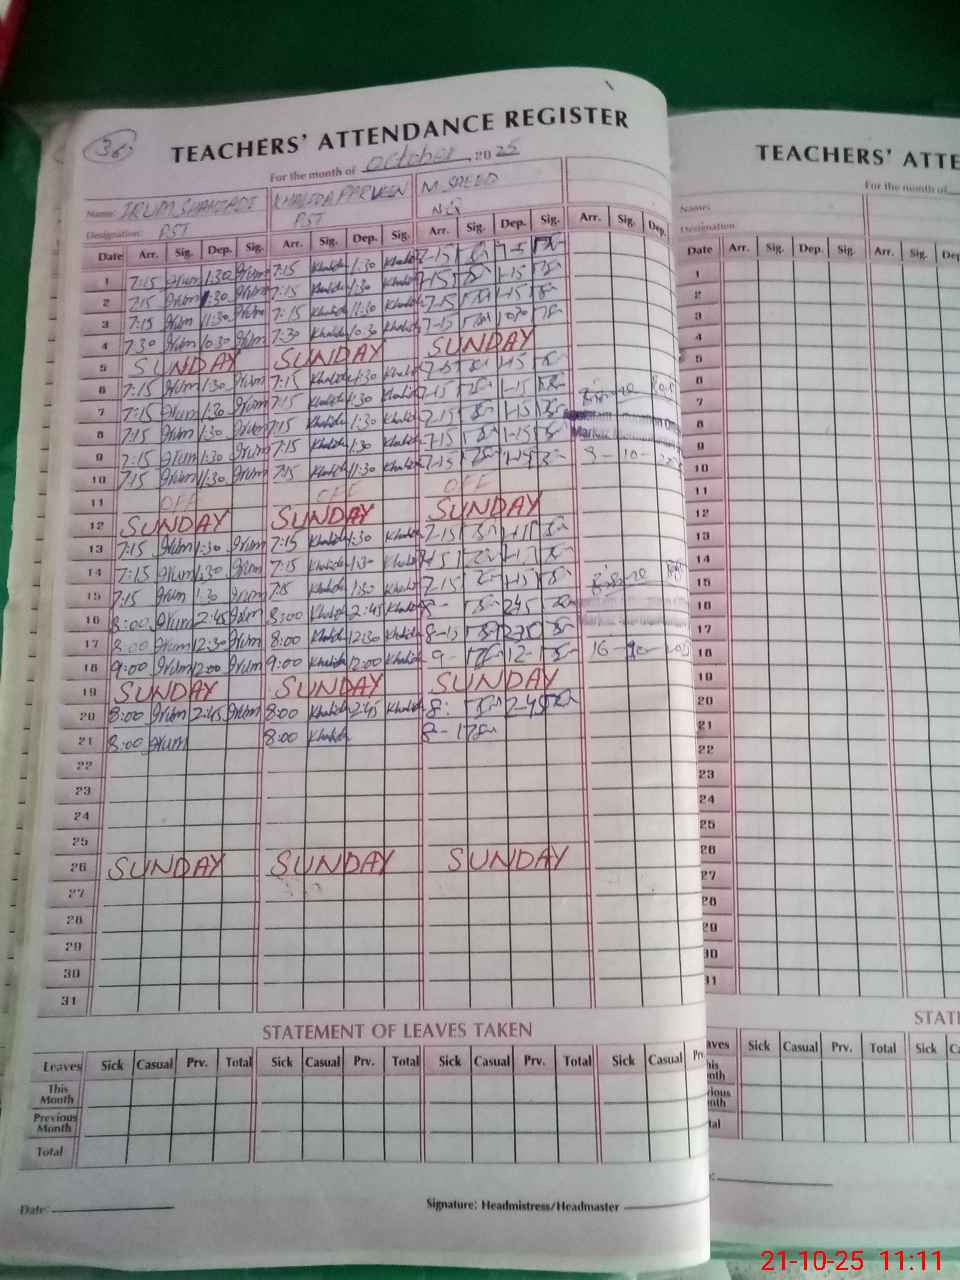 36
TEACHERS' ATTENDANCE REGISTER
For the month of October, 2025
Name: IRUM SHAHZADI KHALIDA PARVEEN M. SAEED
Designation: PST PST N/Q
Date Arr. Sig. Dep. Sig. Arr. Sig. Dep. Sig. Arr. Sig. Dep. Sig. Arr. Sig. Dep.
1 7:15 Irum 1:30 Irum 7:15 Khalida 1:30 Khalida 7-15 1-15
2 7:15 Irum 1:30 Irum 7:15 Khalida 1:30 Khalida 7-15 1-15
3 7:15 Irum 11:30 Irum 7:15 Khalida 11:30 Khalida 7-15
4 7:30 Irum 10:30 Irum 7:30 Khalida 10:30 Khalida 7-15
5 SUNDAY SUNDAY SUNDAY
6 7:15 Irum 1:30 Irum 7:15 Khalida 1:30 Khalida 7-15 1-15
7 7:15 Irum 1:30 Irum 7:15 Khalida 1:30 Khalida 7-15 1-15
8 7:15 Irum 1:30 Irum 7:15 Khalida 1:30 Khalida 7-15 1-15
9 7:15 Irum 1:30 Irum 7:15 Khalida 1:30 Khalida 7-15 1-15
10 7:15 Irum 11:30 Irum 7:15 Khalida 11:30 Khalida 7-15
11 OFF OFF OFF
12 SUNDAY SUNDAY SUNDAY
13 7:15 Irum 1:30 Irum 7:15 Khalida 1:30 Khalida 7-15
14 7:15 Irum 1:30 Irum 7:15 Khalida 1:30 Khalida
15 7:15 Irum 1:30 Irum 7:15 Khalida 1:30 Khalida 7-15 1-15
16 8:00 Irum 2:45 Irum 8:00 Khalida 2:45 Khalida 8- 2-45
17 8:00 Irum 12:30 Irum 8:00 Khalida 12:30 Khalida 8-15
18 9:00 Irum 12:00 Irum 9:00 Khalida 12:00 Khalida 9- 12-
19 SUNDAY SUNDAY SUNDAY
20 8:00 Irum 2:45 Irum 8:00 Khalida 2:45 Khalida 8: 2-45
21 8:00 Irum 8:00 Khalida 8-
22
23
24
25
26 SUNDAY SUNDAY SUNDAY
27
28
29
30
31
STATEMENT OF LEAVES TAKEN
Leaves Sick Casual Prv. Total Sick Casual Prv. Total Sick Casual Prv. Total Sick Casual Prv.
This Month
Previous Month
Total
Date: Signature: Headmistress/Headmaster
TEACHERS' ATTE
For the month of
Name:
Designation:
Date Arr. Sig. Dep. Sig. Arr. Sig. Dep
1
2
3
4
5
6
7
8
9
10
11
12
13
14
15
16
17
18
19
20
21
22
23
24
25
26
27
28
29
30
31
STATE
Sick Casual Prv. Total Sick
21-10-25 11:11